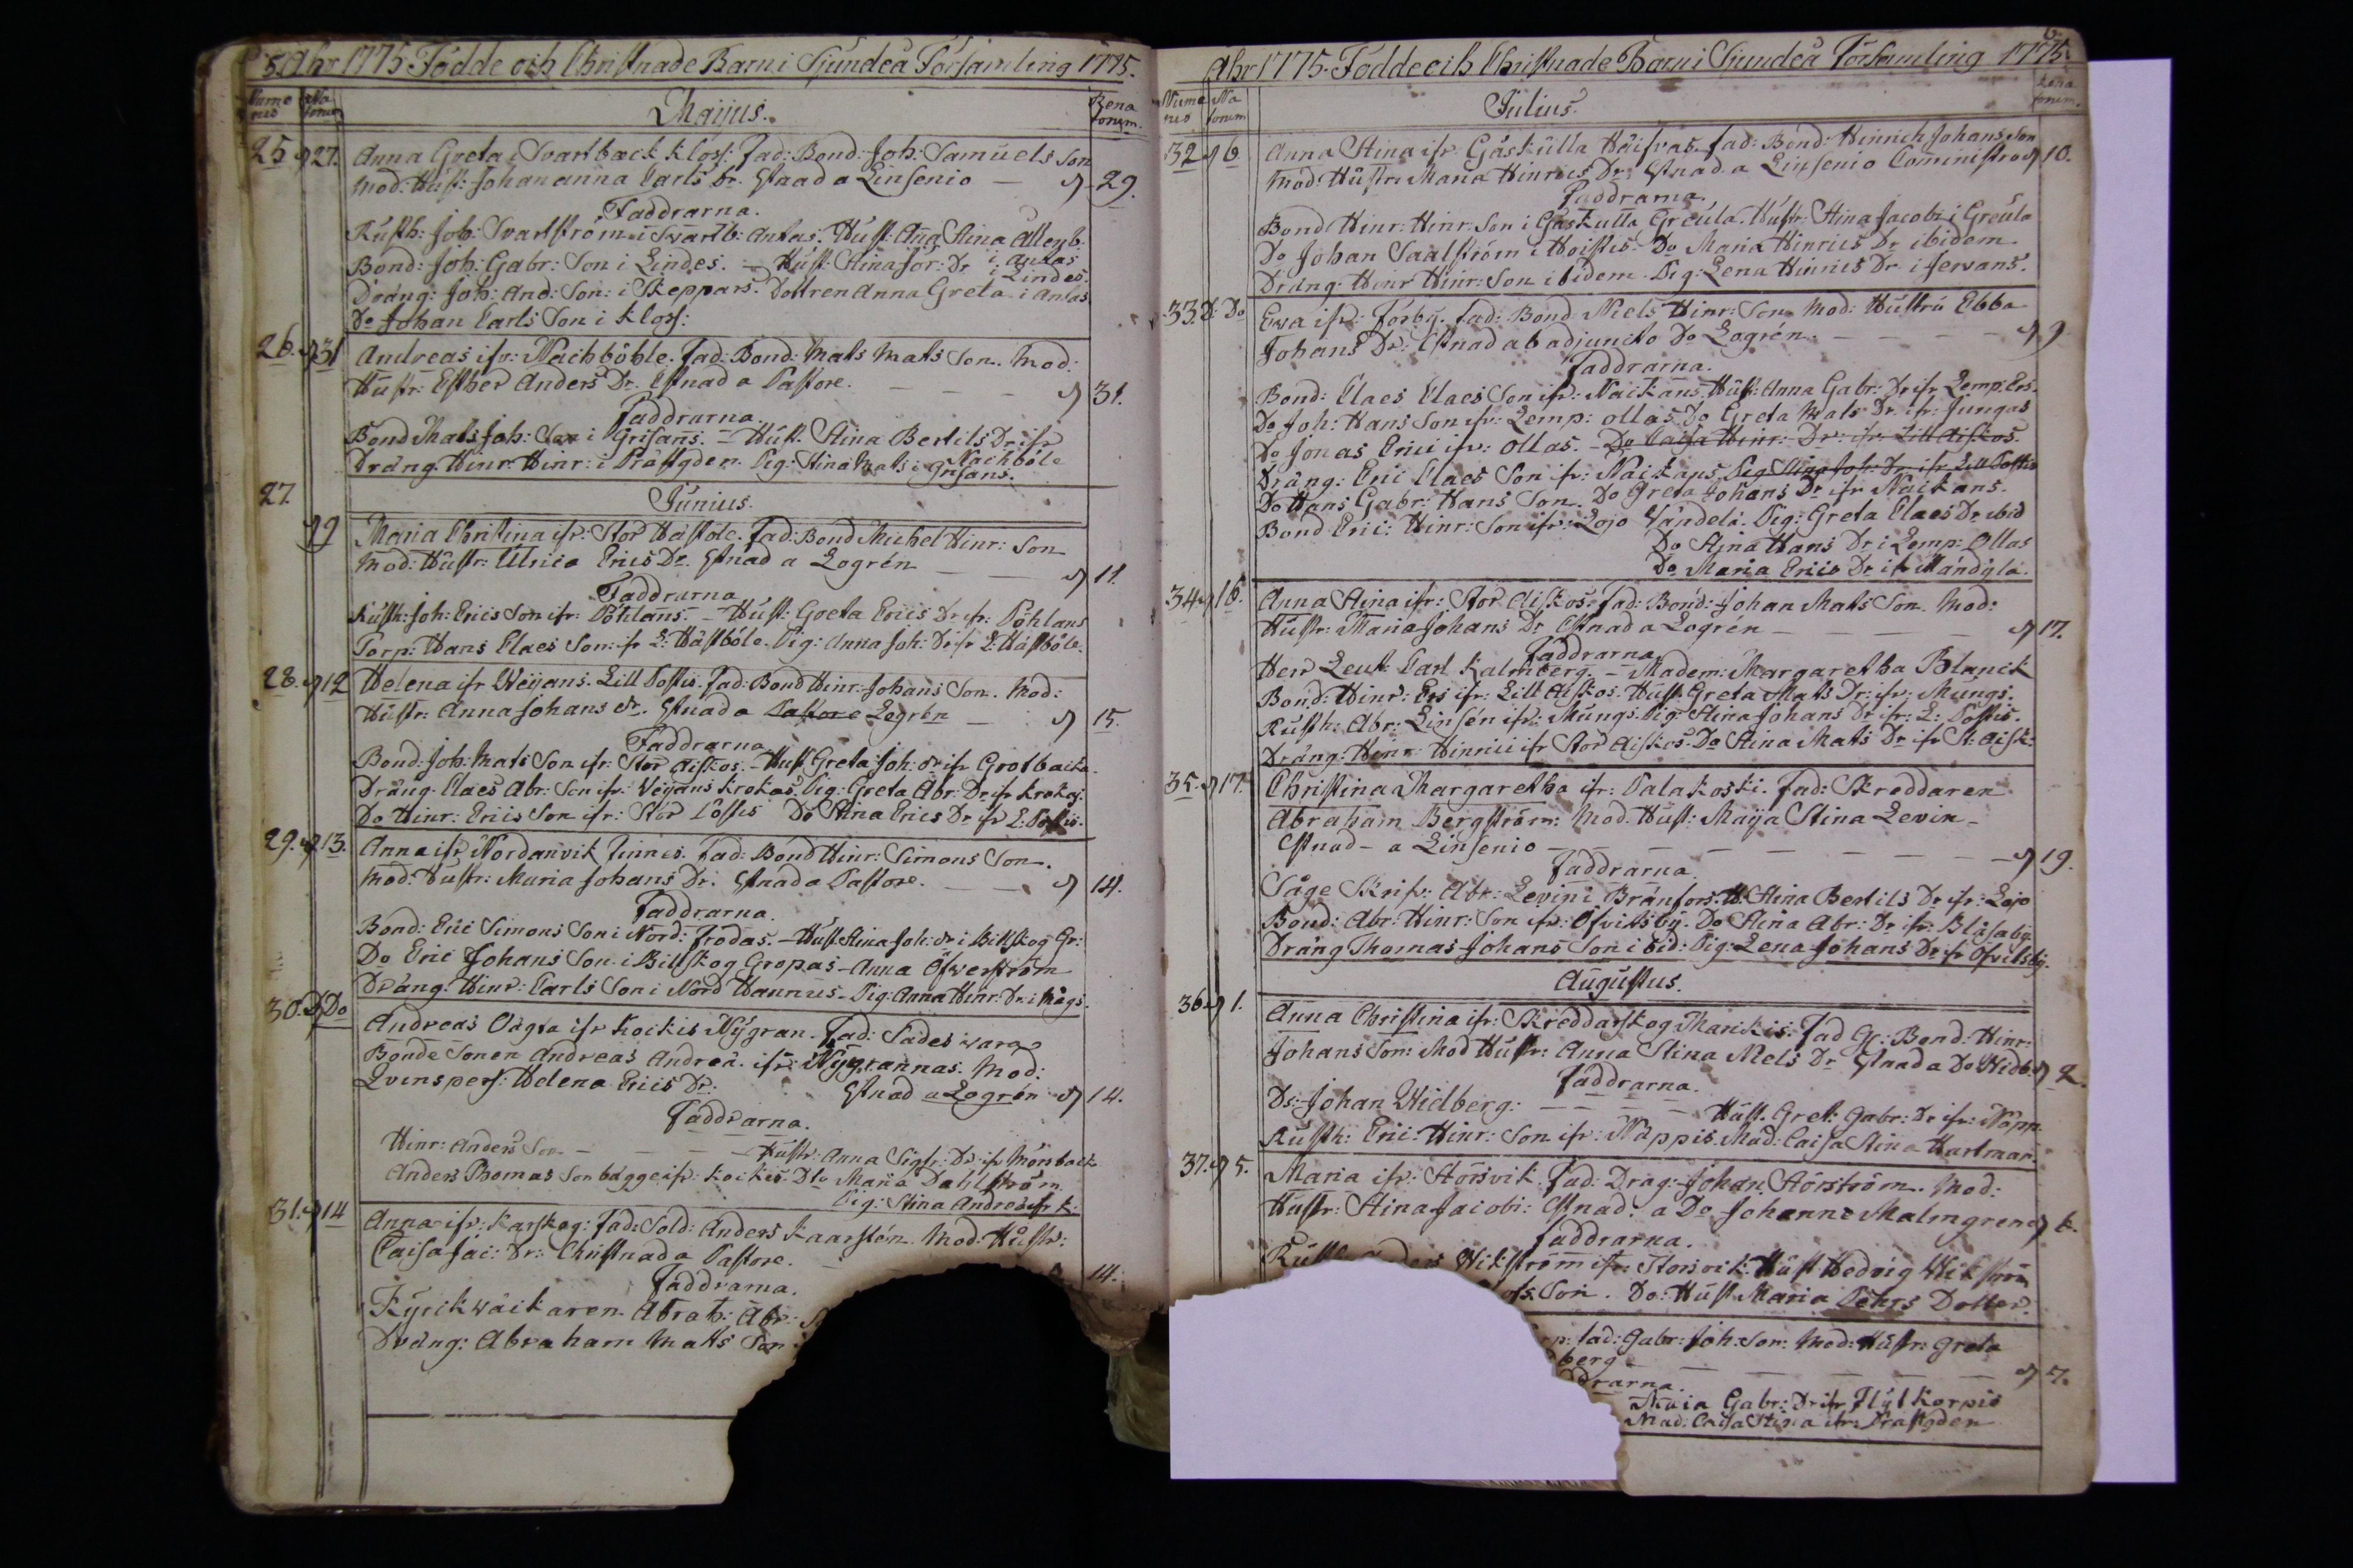 5. Åhr 1775 Födde och Christnade Barn i Sjundeå Församling 1775.
Nume nus Na torum Maijus. Rena torum.
25 d 27. Anna Greta i Svartbæck Kloss: Fad: Bond: Joh: Samuels Son
Mod: Hust: Johananna Carls Dr. Chnad a Linsenio — d 29.
Faddrarna.
Rusth: Joh: Svartström i Svartb: Antas. Hust: Anna Stina Allenb:
i Antas
Bond: Joh: Gabr: Son i Lindes. — Hust: Stina Jör: Dr i Lindes.
Dräng: Joh: And: Son: i Skeppars. Dottren Anna Greta i Antas
Do Johan Carls Son i Kloss:
26. d 31 Andreas ifr: Nachböhle. Fad: Bond: Mats Mats Son. Mod:
Hustr: Esther Anders Dr. Chnad a Pastore. — — d 31.
Faddrarna.
Bond Mats Joh: Son i Grisans. — Hust. Stina Bertils Dr ifr
Nachböle
Dräng. Hinr: Hinr: i Prästgden. Pig: Stina Mats i Grisans.
27. Junius.
d 9 Maria Christina ifr: Stor Hästöle. Fad: Bond Michel Hinr: Son
Mod: Hustr: Ulrica Erics Dr. Chnad a Logrén — — d 11.
Faddrarna
Rusth: Joh: Erics Son ifr: Pöhlans. — Hust: Greta Erics Dr ifr: Pöhlans
Torp: Hans Claes Son: ifr L: Hästböle. Pig: Anna Joh: Dr ifr L: Hästböle.
28. d 12 Helena ifr Weijans. Lill Postis. Fad: Bond Hinr: Johans Son. Mod:
Hustr: Anna Johans dr. Chnad a Pastore Logrén — d 15.
Faddrarna
Bond: Joh: Mats Son ifr: Stor Aiskos. — Hust Greta Joh: dr ifr Grotbacka.
Dräng. Claes Abr: Son ifr: Weijans Krokas. Pig: Greta Abr: Dr ifr Krokas.
Do Hinr: Erics Son ifr: Stor Postis Do Stina Erics Dr ifr L: Postis.
29. d 13. Anna ifr Nordanvik Finnes. Fad: Bond Hinr: Simons Son.
Mod: Hustr: Maria Johans Dr. Chnad a Pastore. — — d 14.
Faddrarna.
Bond: Eric Simons Son i Nord: Frodas. — Hust Stina Joh: dr i Billskog Gr:
Do Eric Johans Son i Billskog Gropas — Anna Öfwerström
Dräng. Hinr: Carls Son i Nord Hannus. Pig: Anna Hinr: Dr i Mågs.
30. D Do Andreas Oägta ifr Kockis Nygran. Fad: Sades wara
Bonde Sonen Andreas Andreæ. ifr: Nygrannas. Mod:
Qvinspers: Helena Erics Dr. Chnad a Logrén d 14.
Faddrarna.
Hinr: Anders Son — — — Hustr: Anna Sigfr: Dr ifr Mörsback
Anders Thomas Son bagge ifr: Kockis. Dto Maria Dahlström
Pig: Stina Andreæ ifr K:
31. d 14 Anna ifr: Karskog: Fad: Sold: Anders Kaarstén. Mod: Hustr:
Caisa Jac: Dr: Christnad a Pastore. 14.
Faddrarna.
Kyrckwäcktaren. Abrah: Abr:
Dräng: Abraham Matts Son
Åhr 1775. Födde och Christnade Barn i Sjundeå Församling 1775. 6.
Nume nus Na torum Julius. Rena torum.
32 d 6 Anna Stina ifr: Gåskulla Häifvas. Fad: Bond: Hinrich Johans Son
Mod: Hustr: Maria Hinrics Dr: Chnad a Linsenio Comministro d 10.
Faddrarna.
Bond Hinr: Hinr: Son i Gåskulla Greula. Hustr: Stina Jacobi i Greula
Do Johan Saalström i Hoistis — Do Maria Hinrics Dr ibidem
Dräng: Hinr Hinr: Son ibidem. Pig: Lena Hinrics Dr i Jervans.
33. D: Do Ewa ifr: Förby. Fad: Bond Niels Hinr: Son Mod: Hustru Ebba
Johans Dr: Chnad ab adjuncto Do Logrén. — — — d 9
Faddrarna.
Bond: Claes Claes Son ifr: Naickans. Hust: Anna Gabr: Dr ifr Lemp: Ers.
Do Joh: Hans Son ifr: Lemp: Ollas. Do Greta Mats Dr ifr: Jungas
Do Jonas Erici ifr: Ollas. — Do Caisa Hinr: Dr: ifr: Lill Aiskos.
Dräng: Eric Claes Son ifr: Naickans. Pig Stina Joh: Dr ifr Lill Postis
Do Hans Gabr: Hans Son. Do Greta Johans Dr ifr Naickans.
Bond Eric: Hinr: Son ifr: Lojo Vandela. Pig: Greta Claes Dr ibid
Do Stina Hans Dr i Lemp: Ollas
Do Maria Erics Dr ifr Mandgla.
34 d 16. Anna Stina ifr: Stor Aiskos. Fad: Bond: Johan Mats Son. Mod:
Hustr: Maria Johans Dr Chnad a Logrén — — — — d 17.
Faddrarna.
Herr Leut: Carl Kalmberg. — Madem: Margaretha Blanck
Bond: Hinr: Eri ifr: Lill Aiskos. Hust Greta Mats Dr: ifr: Mungs.
Rusth: Abr: Linsén ifr: Mungs. Pig: Stina Johans Dr ifr: L: Postis.
Dräng: Hinr: Hinrici ifr Stor Aiskos. Do Stina Mats Dr ifr St: Aisk:
35. d 17. Christina Margaretha ifr: Palakoski. Fad: Skreddaren
Abraham Bergström: Mod: Hust: Maija Stina Levin —
Chnad — a Linsenio — — — — — — — d 19.
Faddrarna.
Såge Skrifv: Abr: Levin i Bränfors. H. Stina Bertils Dr ifr: Lojo
Bond: Abr: Hinr: Son ifr: Öfvitsby. Do Stina Abr: Dr ifr: Blåsaby.
Dräng Thomas Johans Son ibid: Pig: Lena Johans Dr ifr Öfvitsby.
Augustus.
36. d 1. Anna Christina ifr: Skreddarskog Marikis: Fad Gl: Bond: Hinr:
Johans Son: Mod Hustr: Anna Stina Niels Dr Chnad a Do Widb: d 2.
Faddrarna.
Ds: Johan Widberg: — — — — Hust. Gret: Gabr: Dr ifr: Näpp.
Rusth: Eric: Hinr: Son ifr: Näppis. Mad: Caisa Stina Hartman.
37. d 5. Maria ifr: Störsvik. Fad: Dräg: Johan Störström. Mod:
Hustr: Stina Jacobi: Chnad: a Do Johanne Malmgren d 6.
Faddrarna.
Rusth Anders Wikström ifr: Störsvik: Hust Hedvig Wikström
Mats Son. Do: Hust Maria Pehrs Dotter.
Fad: Gabr: Joh: Son: Mod: Hustr: Greta
berg — — — — — — d 7.
drarna.
Maia Gabr: Dr ifr Flytkorpis
Mad: Caisa Stina ifr: Prästgden